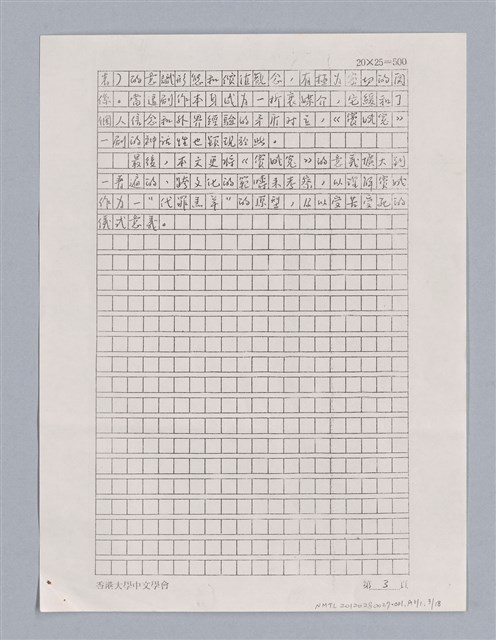 20×25=500
表）的意識形態和價值觀念，有極為密切的関
係。當這劇作本身成為一折衷媒介，它緩和了
個人信念和外界經驗的矛盾対立，《竇娥冤》
一劇的神話性也顕現於此。
最後，本文更將《竇娥冤》的意義擴大到
一普遍的、跨文化的範疇來考察，以詮解竇娥
作為一“代罪羔羊”的原型，
以受苦受死的
儀式意義。
香港大學中文學會
第 3 頁
NMTL 20120250027-001, A4/1, 3/18